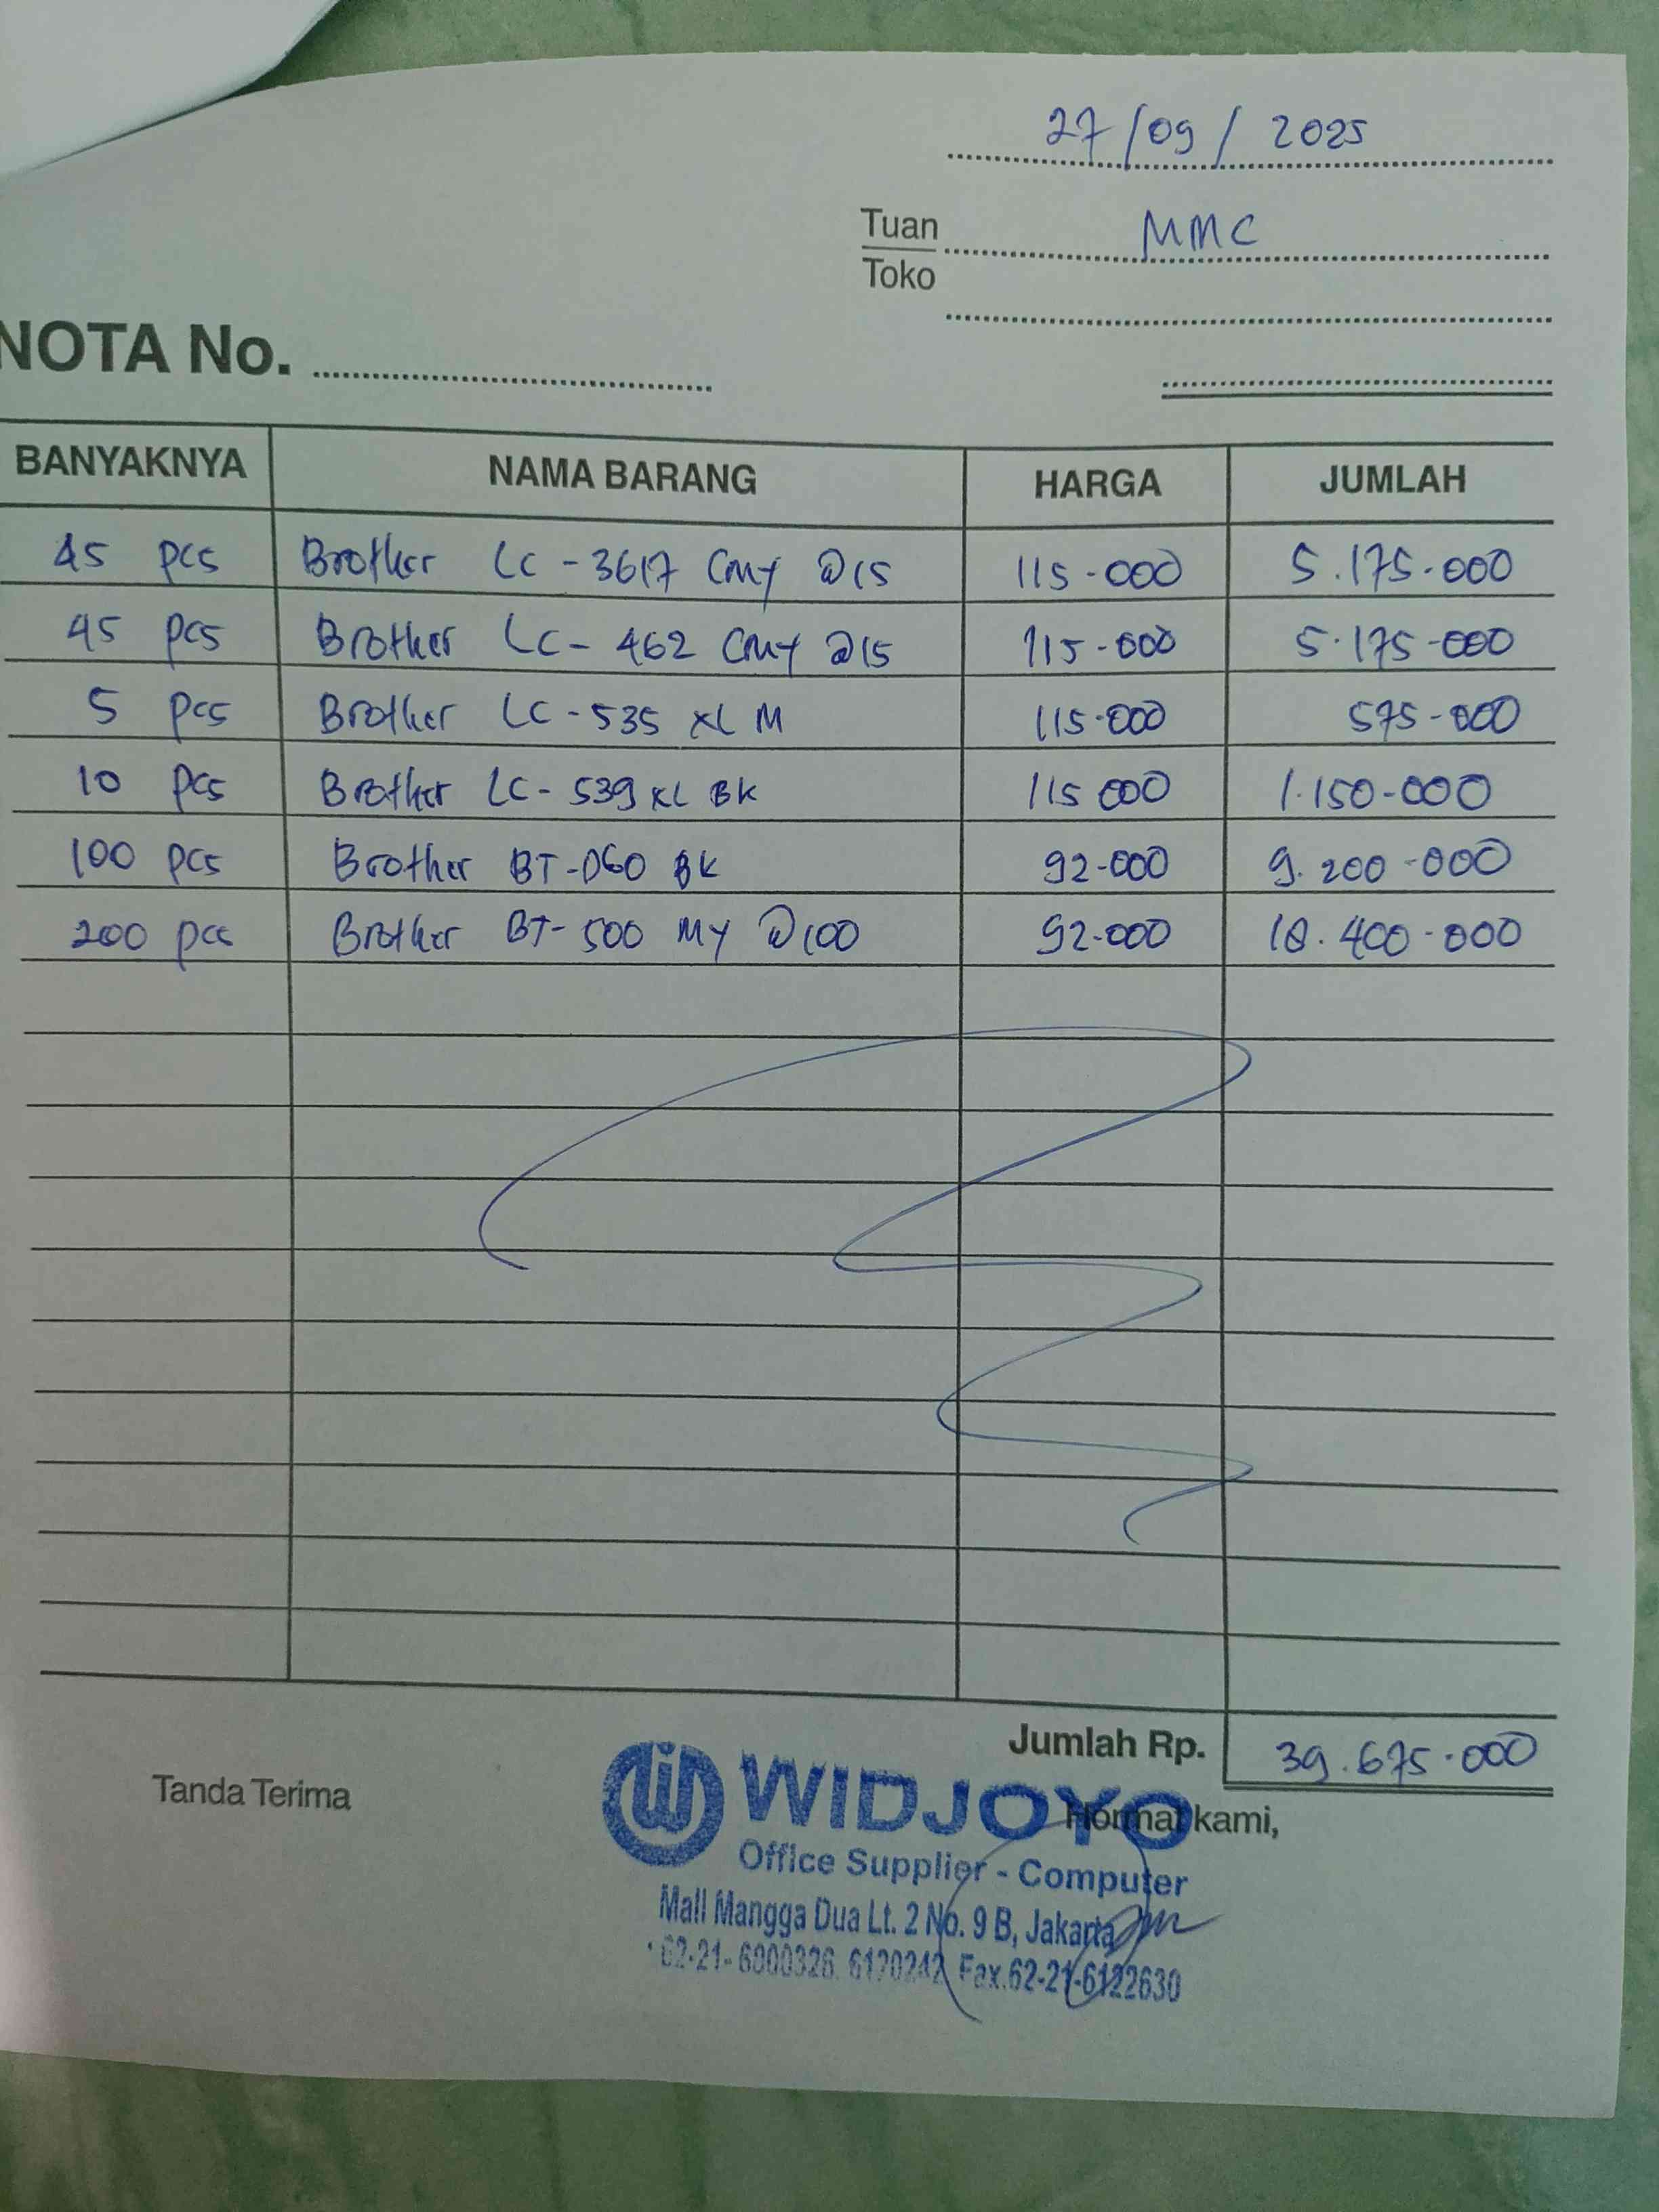 27/09/2025
Tuan MMC
Toko
NOTA No.
BANYAKNYA NAMA BARANG HARGA JUMLAH
45 pcs Brother LC-3617 CMY @15 115-000 5.175-000
45 pcs Brother LC-462 CMY @15 115-000 5.175-000
5 pcs Brother LC-535 XL M 115-000 575-000
10 pcs Brother LC-539 XL BK 115 000 1.150-000
100 pcs Brother BT-D60 BK 92-000 9.200-000
200 pcs Brother BT-500 MY @100 92-000 18.400-000
Jumlah Rp. 39.675-000
Tanda Terima
Hormat kami,
WIDJOYO
Office Supplier - Computer
Mall Mangga Dua Lt. 2 No. 9 B, Jakarta
62-21- 6120242 Fax.62-21-6122630